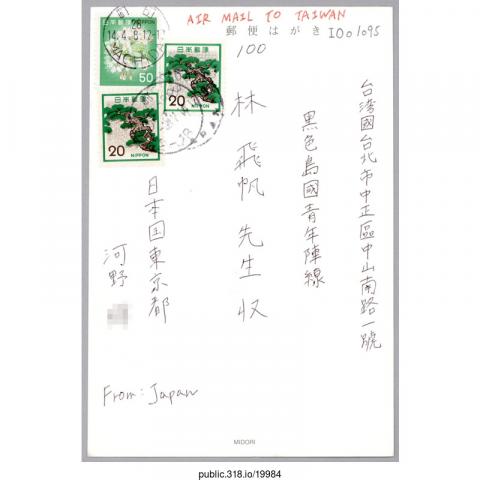 AIR MAIL TO TAIWAN
郵便はがき I001095
100
台湾國台北市中正區中山南路一號
黑色島國青年陣線
林飛帆先生収
日本国東京都
河野
From: Japan
日本郵便
50
NIPPON
日本郵便
20
NIPPON
日本郵便
20
NIPPON
14.4.8.12-1
MACHIDA
MIDORI
public.318.io/19984